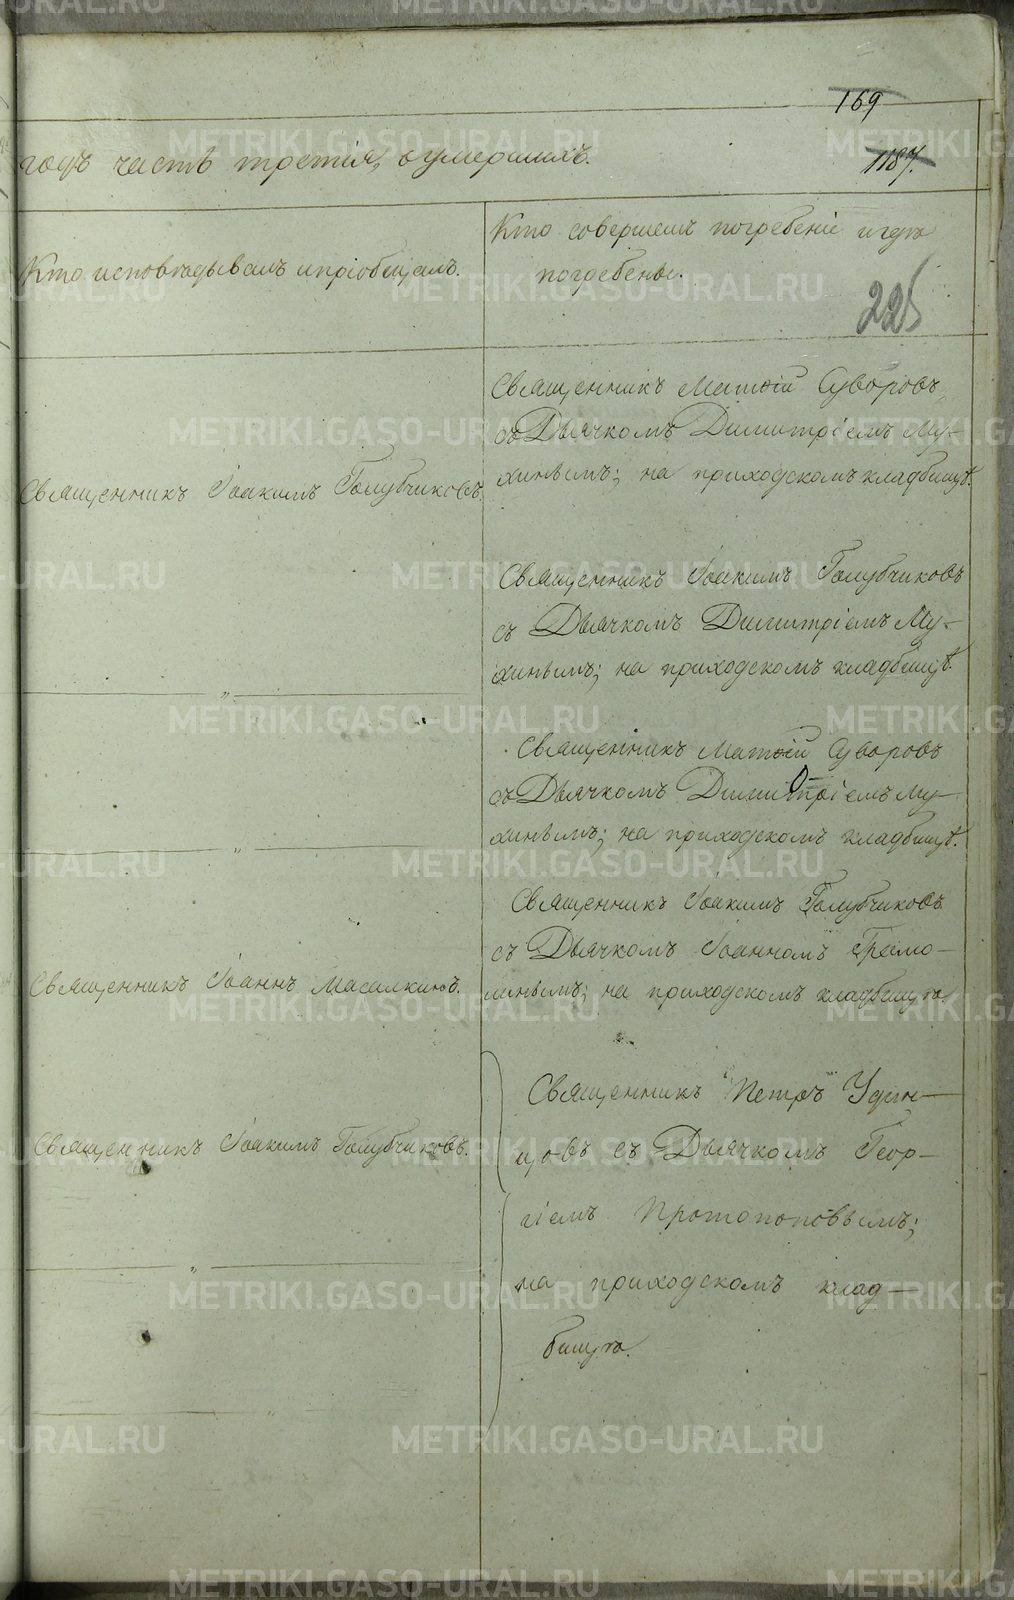 169
годъ часть третія, о умершихъ.
1187.
Кто исповѣдывалъ и пріобщалъ.
Кто совершалъ погребеніе и гдѣ
погребены.
225
Священникъ Іоакимъ Голубчиковъ.
Священникъ Матѳій Суворовъ,
съ Дьячкомъ Димитріемъ Му-
хинымъ; на приходскомъ кладбищѣ.
Священникъ Іоакимъ Голубчиковъ
съ Дьячкомъ Димитріемъ Му-
хинымъ; на приходскомъ кладбищѣ.
„
Священникъ Матѳій Суворовъ
съ Дьячкомъ Димитріемъ Му-
хинымъ; на приходскомъ кладбищѣ.
„
Священникъ Іоаннъ Масалкинъ.
Священникъ Іоакимъ Голубчиковъ
съ Дьячкомъ Іоанномъ
на приходскомъ кладбищѣ.
Священникъ Іоакимъ Голубчиковъ.
Священникъ Петръ Удин-
цовъ съ Дьячкомъ Геор-
гіемъ Протопоповымъ;
на приходскомъ клад-
бищѣ.
„
METRIKI.GASO-URAL.RU